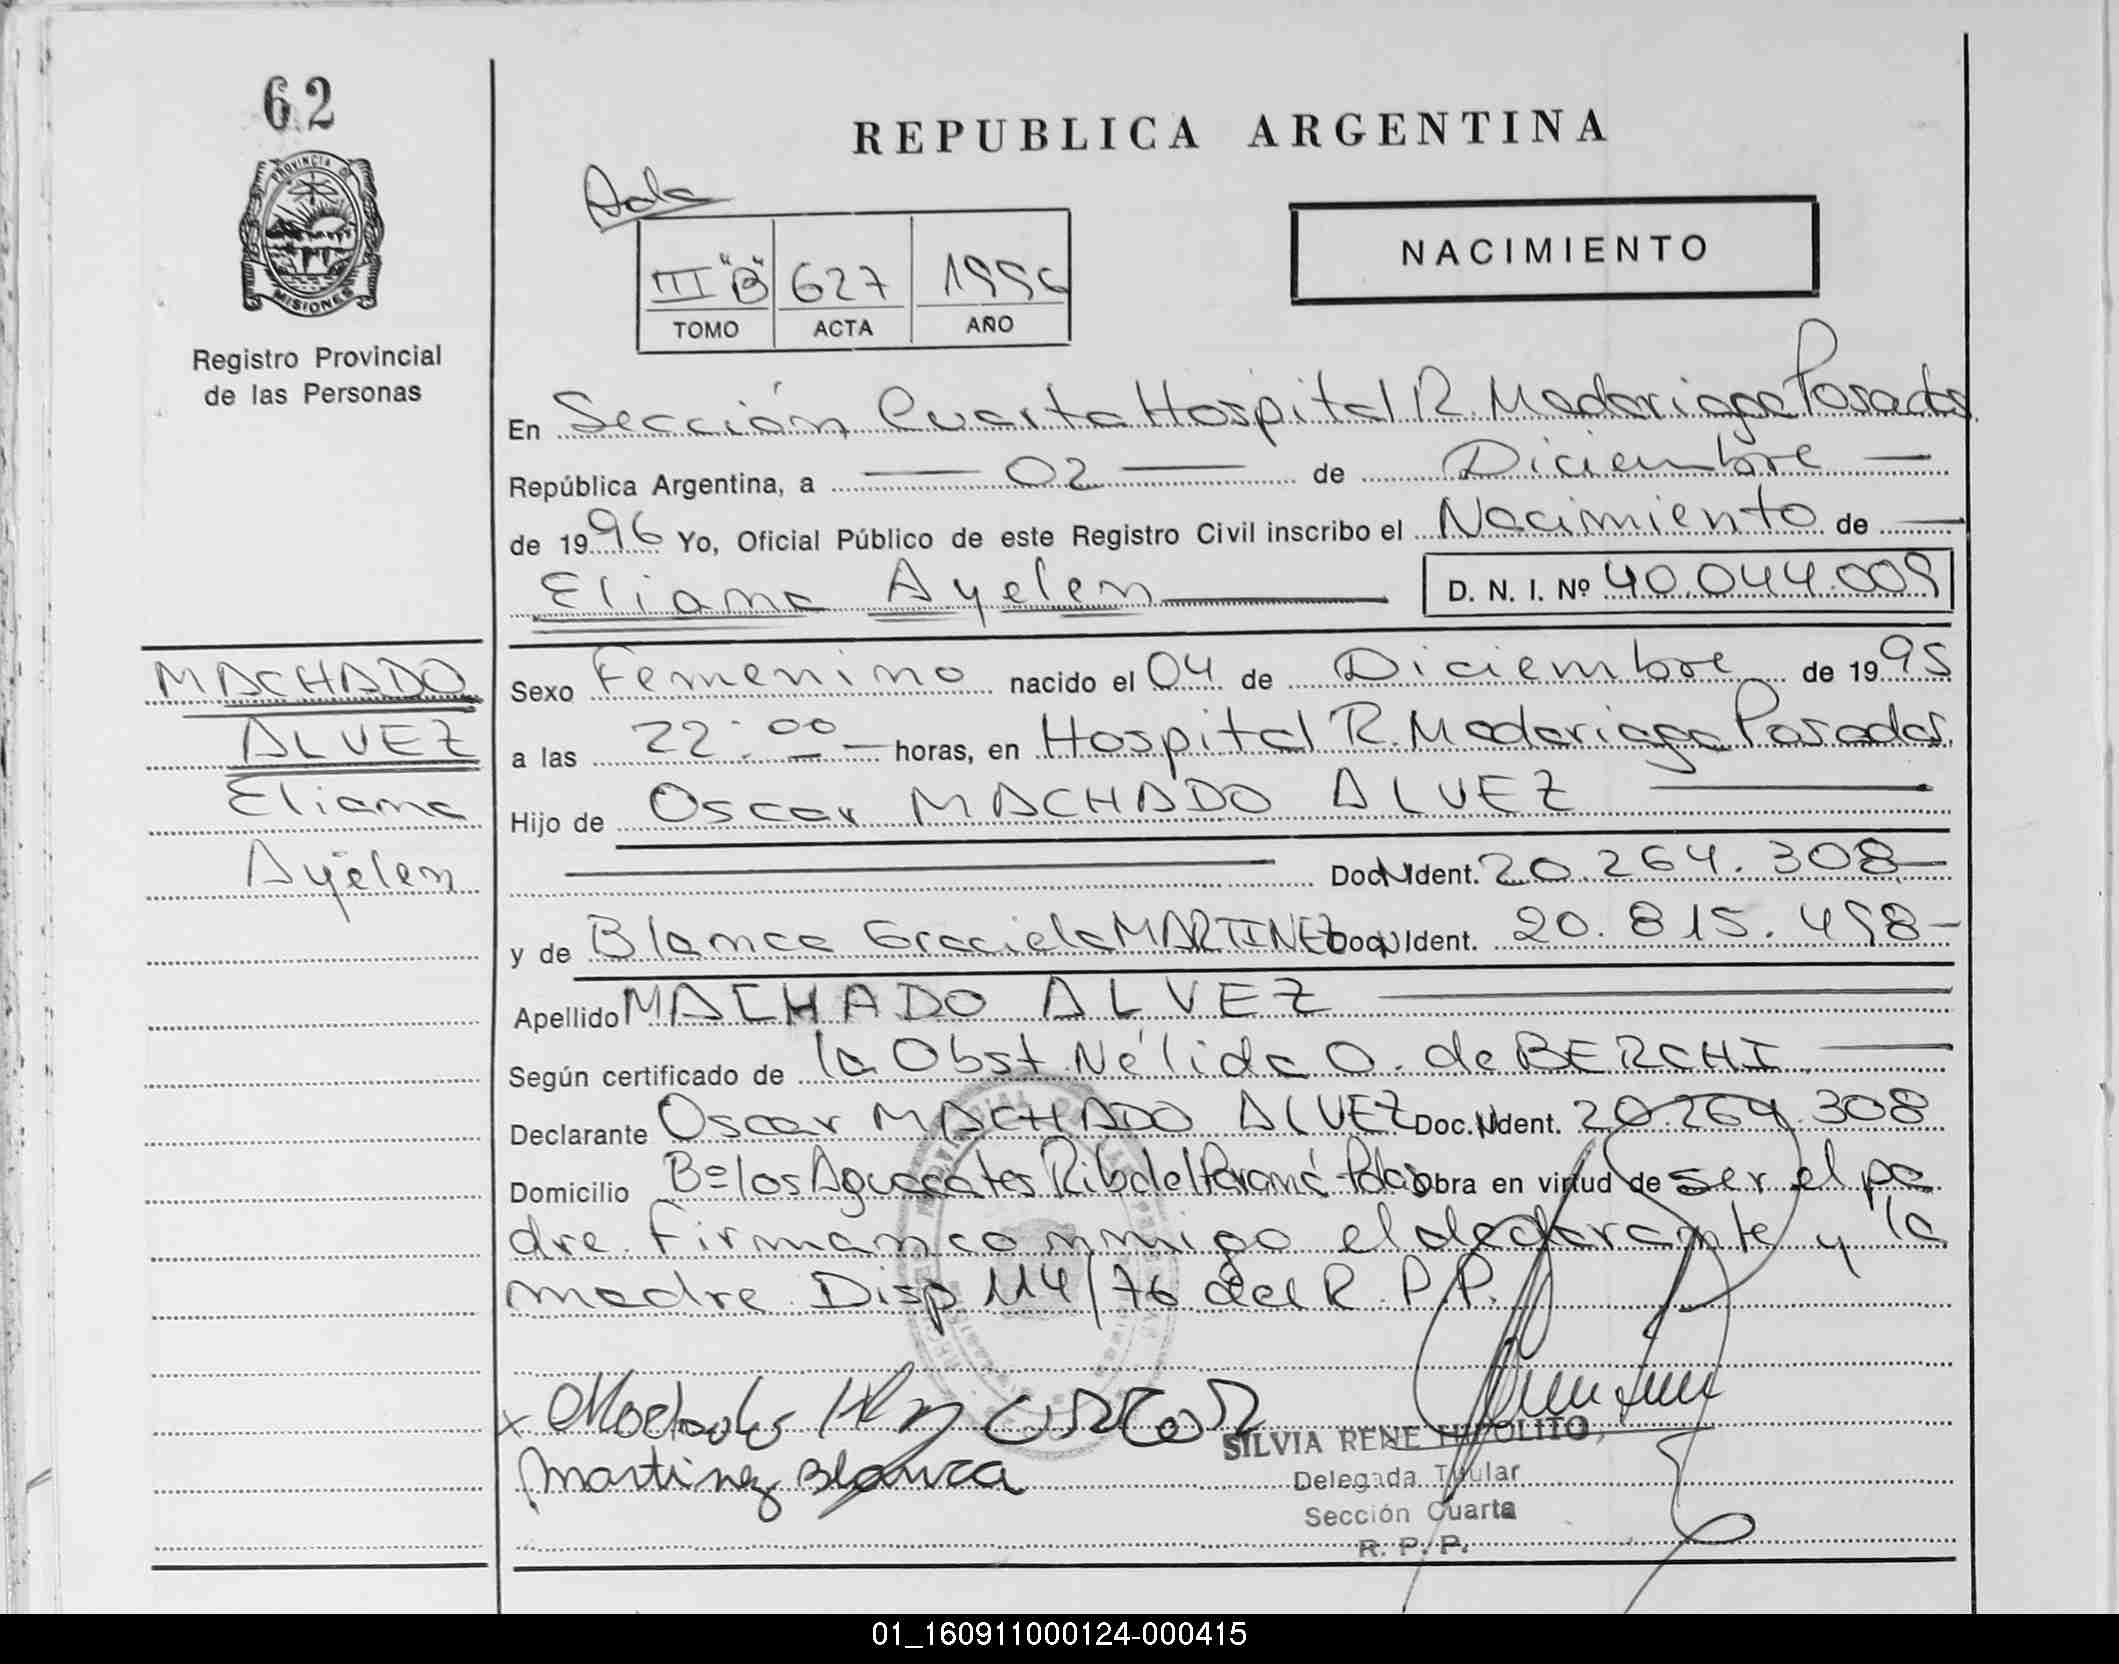 62
PROVINCIA DE
MISIONES
Registro Provincial
de las Personas
REPUBLICA ARGENTINA
NACIMIENTO
III "B" 627 1996
TOMO ACTA AÑO
En Sección Cuarta Hospital R. Madariaga Posadas
República Argentina, a 02 de Diciembre
de 1996 Yo, Oficial Público de este Registro Civil inscribo el Nacimiento de
Eliana Ayelen D. N. I. Nº 40.044.009
MACHADO
ALVEZ
Eliana
Ayelen
Sexo Femenino nacido el 04 de Diciembre de 1995
a las 22:00 horas, en Hospital R. Madariaga Posadas
Hijo de Oscar MACHADO ALVEZ
Doc N Ident. 20.264.308
y de Blanca Graciela MARTINEZ Doc N Ident. 20.815.498
Apellido MACHADO ALVEZ
Según certificado de la Obst. Nélida O. de BERCHI
Declarante Oscar MACHADO ALVEZ Doc. N Ident. 20.264.308
Domicilio Bº los Aguacates Rib del Paraná - Pdas obra en virtud de ser el pa
dre. Firman conmigo el declarante y la
madre. Disp 114/76 del R.P.P.
Martinez Blanca
SILVIA RENE HIPOLITO
Delegada Titular
Sección Cuarta
R. P. P.
01_160911000124-000415